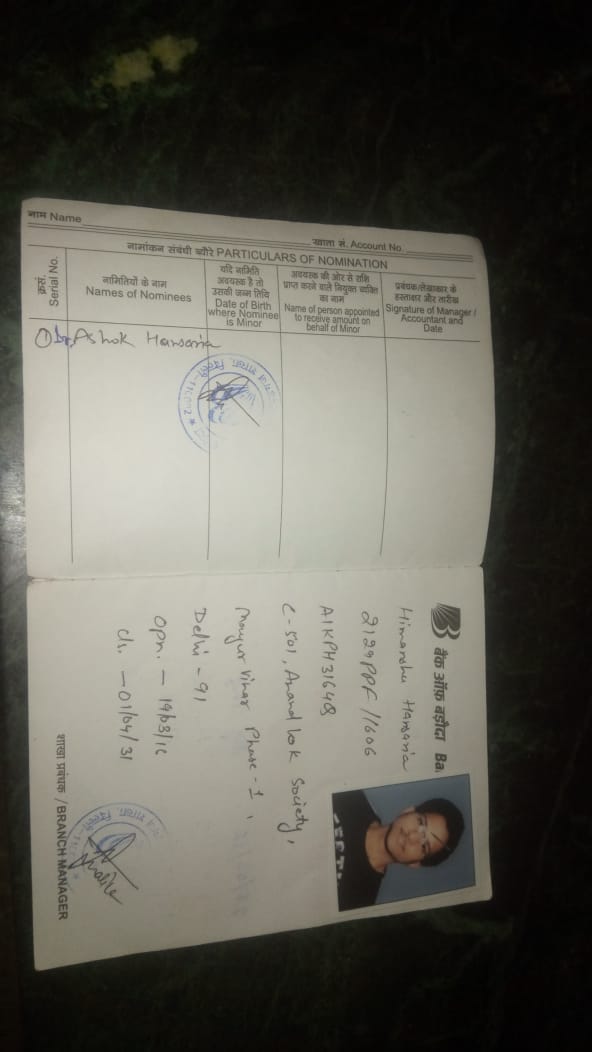 नाम Name
खाता सं. Account No.
नामांकन संबंधी ब्यौरे PARTICULARS OF NOMINATION
क्रसं.
Serial No.
नामितियों के नाम
Names of Nominees
यदि नामिति
अवयस्क है तो
उसकी जन्म तिथि
Date of Birth
where Nominee
is Minor
अवयस्क की ओर से राशि
प्राप्त करने वाले नियुक्त व्यक्ति
का नाम
Name of person appointed
to receive amount on
behalf of Minor
प्रबंधक/लेखाकार के
हस्ताक्षर और तारीख
Signature of Manager /
Accountant and
Date
① Ashok Hansaria
बैंक ऑफ़ बड़ौदा Ba
Himanshu Hansaria
2129PPF11606
AIKPH3164Q
C-501, Anand Lok Society,
Mayur Vihar Phase-1,
Delhi - 91
Opn. - 19/03/16
Cls. - 01/04/31
शाखा प्रबंधक / BRANCH MANAGER